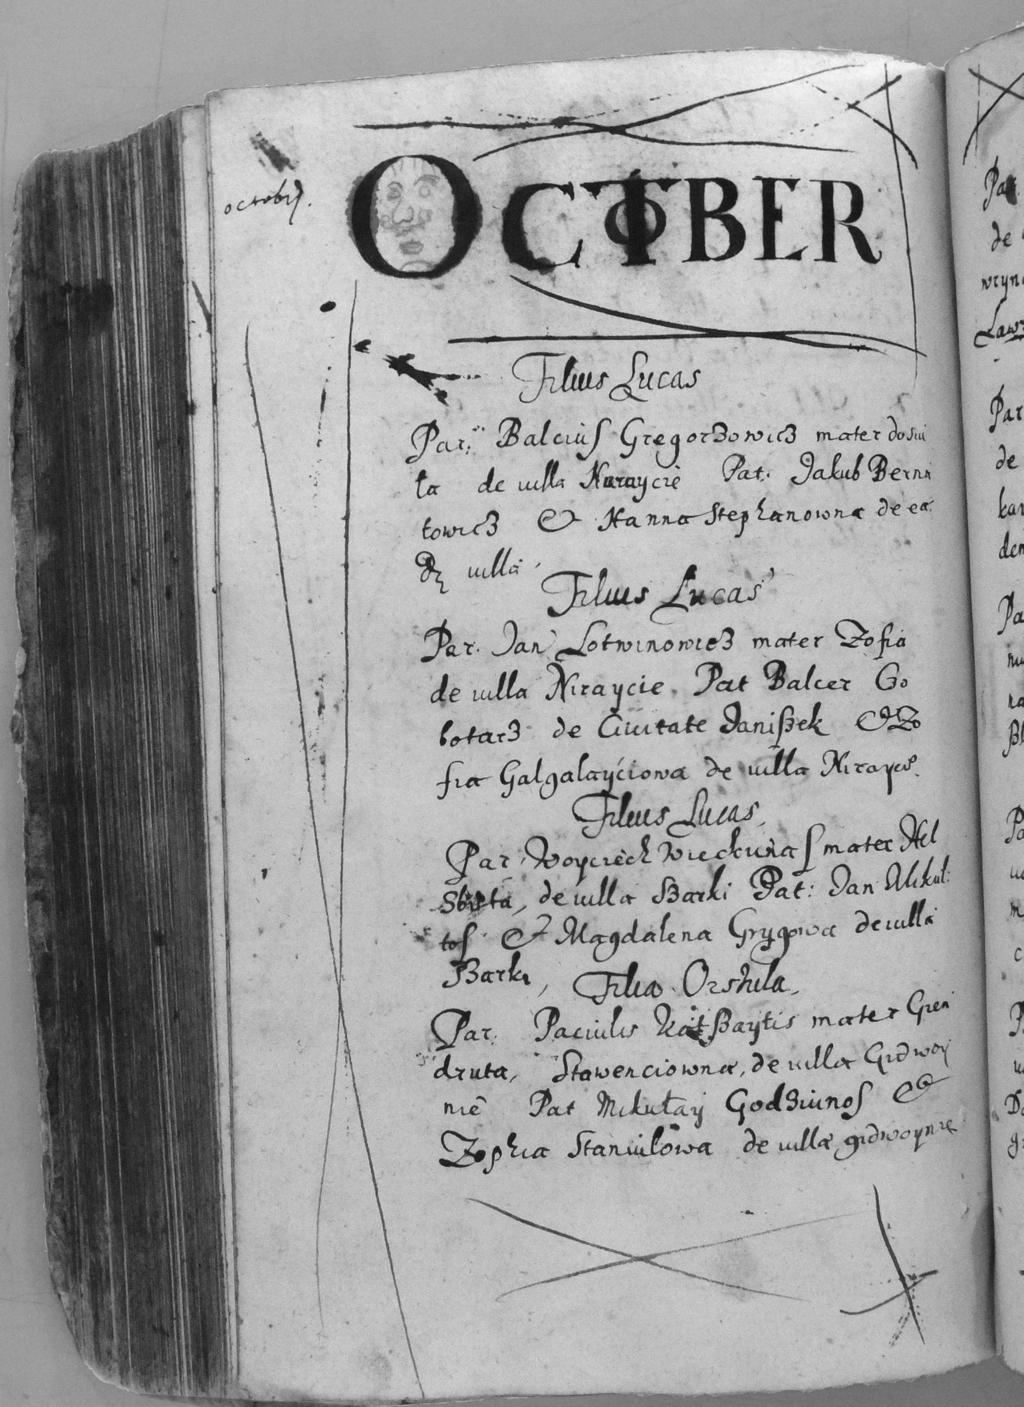 October
OCTOBER
Filius Lucas
Par: Balciuſ Gregorzowicz mater dosiu
ta de villa Naraycie Pat. Jakub Berna
towicz & Hanna Stephanowna de ea
villa.
Filius Lucas
Par. Jan Lotwinowicz mater Zofia
de villa Niraycie. Pat Balcer Go
botarz de Ciuitate Janiſzek & Zo
fia Galgalayciowa de villa Niraycie.
Filius Lucas,
Par. Woyciech Wieckunaſ mater Hel
de villa Barki Pat: Jan Mikul:
toſ & Magdalena Grygowa de villa
Barki,
Filia Orshula,
Par: Paciulis mater Gien
druta, Stawenciowna, de villa Gidwoy
nie Pat Mikułay Godziunoſ &
Zophia Staniulowa de villa gidwoynie
Par
de
Law
Par
de
kar
den
Pa